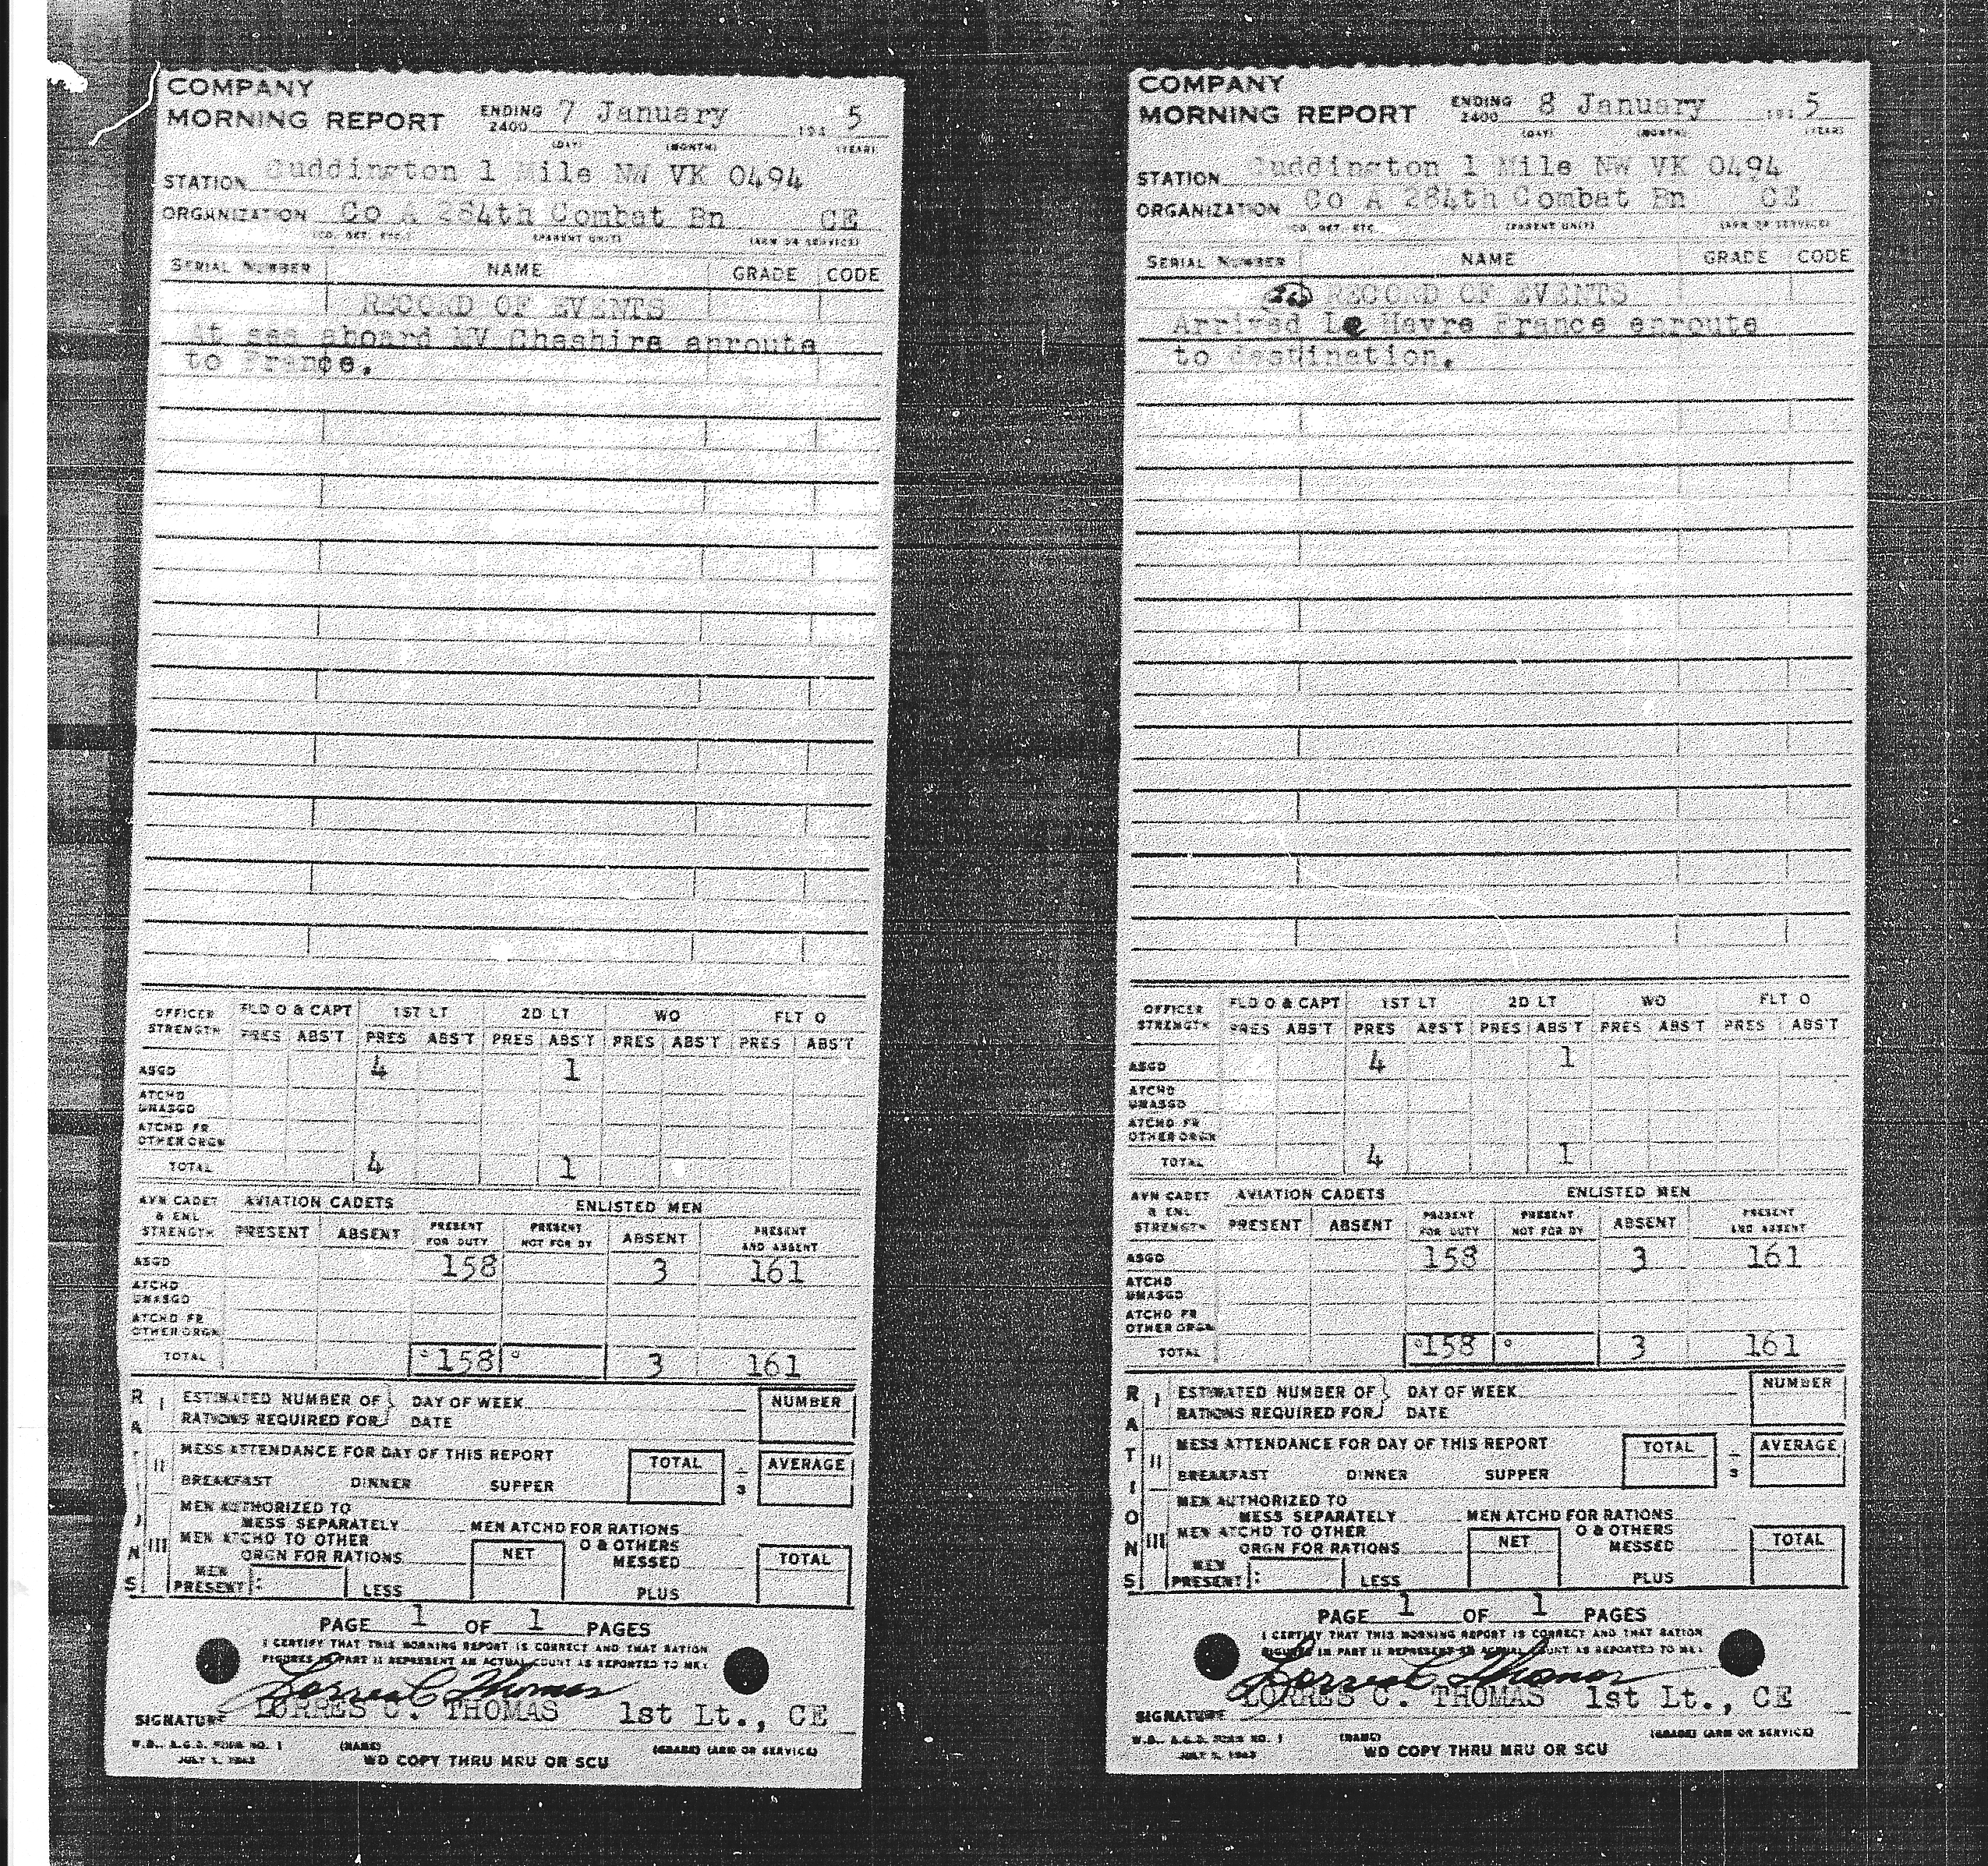 COMPANY
MORNING REPORT ENDING 2400 7 January 194 5
(DAY) (MONTH) (YEAR)
STATION Cuddington 1 Mile NW VK 0494
ORGANIZATION Co A 284th Combat Bn CE
(CO, DET, ETC.) (PARENT UNIT) (ARM OR SERVICE)
SERIAL NUMBER NAME GRADE CODE
RECORD OF EVENTS
At sea aboard MV Cheshire enroute
to France.
OFFICER STRENGTH FLD O & CAPT 1ST LT 2D LT WO FLT O
PRES ABS'T PRES ABS'T PRES ABS'T PRES ABS'T PRES ABS'T
ASGD 4 1
ATCHD UNASGD
ATCHD FR OTHER ORGN
TOTAL 4 1
AVN CADET & ENL STRENGTH AVIATION CADETS ENLISTED MEN
PRESENT ABSENT PRESENT FOR DUTY PRESENT NOT FOR DY ABSENT PRESENT AND ABSENT
ASGD 158 3 161
ATCHD UNASGD
ATCHD FR OTHER ORGN
TOTAL 158 3 161
RATIONS
I ESTIMATED NUMBER OF DAY OF WEEK NUMBER
RATIONS REQUIRED FOR DATE
II MESS ATTENDANCE FOR DAY OF THIS REPORT TOTAL ÷ 3 AVERAGE
BREAKFAST DINNER SUPPER
III MEN AUTHORIZED TO
MESS SEPARATELY MEN ATCHD FOR RATIONS
MEN ATCHD TO OTHER O & OTHERS
ORGN FOR RATIONS NET MESSED TOTAL
MEN PRESENT: LESS PLUS
PAGE 1 OF 1 PAGES
I CERTIFY THAT THIS MORNING REPORT IS CORRECT AND THAT RATION
FIGURES IN PART II REPRESENT AN ACTUAL COUNT AS REPORTED TO ME:
Lorres C Thomas
LORRES C. THOMAS 1st Lt., CE
SIGNATURE
W.D., A.G.O. FORM NO. 1 (NAME) (GRADE) (ARM OR SERVICE)
JULY 1, 1943 WD COPY THRU MRU OR SCU
COMPANY
MORNING REPORT ENDING 2400 8 January 194 5
(DAY) (MONTH) (YEAR)
STATION Cuddington 1 Mile NW VK 0494
ORGANIZATION Co A 284th Combat Bn CE
CO, DET, ETC. (PARENT UNIT) (ARM OR SERVICE)
SERIAL NUMBER NAME GRADE CODE
RECORD OF EVENTS
Arrived Le Havre France enroute
to destination.
OFFICER STRENGTH FLD O & CAPT 1ST LT 2D LT WO FLT O
PRES ABS'T PRES ABS'T PRES ABS'T PRES ABS'T PRES ABS'T
ASGD 4 1
ATCHD UNASGD
ATCHD FR OTHER ORGN
TOTAL 4 1
AVN CADET & ENL STRENGTH AVIATION CADETS ENLISTED MEN
PRESENT ABSENT PRESENT FOR DUTY PRESENT NOT FOR DY ABSENT PRESENT AND ABSENT
ASGD 158 3 161
ATCHD UNASGD
ATCHD FR OTHER ORGN
TOTAL 158 3 161
RATIONS
I ESTIMATED NUMBER OF DAY OF WEEK NUMBER
RATIONS REQUIRED FOR DATE
II MESS ATTENDANCE FOR DAY OF THIS REPORT TOTAL ÷ 3 AVERAGE
BREAKFAST DINNER SUPPER
III MEN AUTHORIZED TO
MESS SEPARATELY MEN ATCHD FOR RATIONS
MEN ATCHD TO OTHER O & OTHERS
ORGN FOR RATIONS NET MESSED TOTAL
MEN PRESENT: LESS PLUS
PAGE 1 OF 1 PAGES
I CERTIFY THAT THIS MORNING REPORT IS CORRECT AND THAT RATION
FIGURES IN PART II REPRESENT AN ACTUAL COUNT AS REPORTED TO ME:
Lorres C Thomas
LORRES C. THOMAS 1st Lt., CE
SIGNATURE
W.D., A.G.O. FORM NO. 1 (NAME) (GRADE) (ARM OR SERVICE)
JULY 1, 1943 WD COPY THRU MRU OR SCU